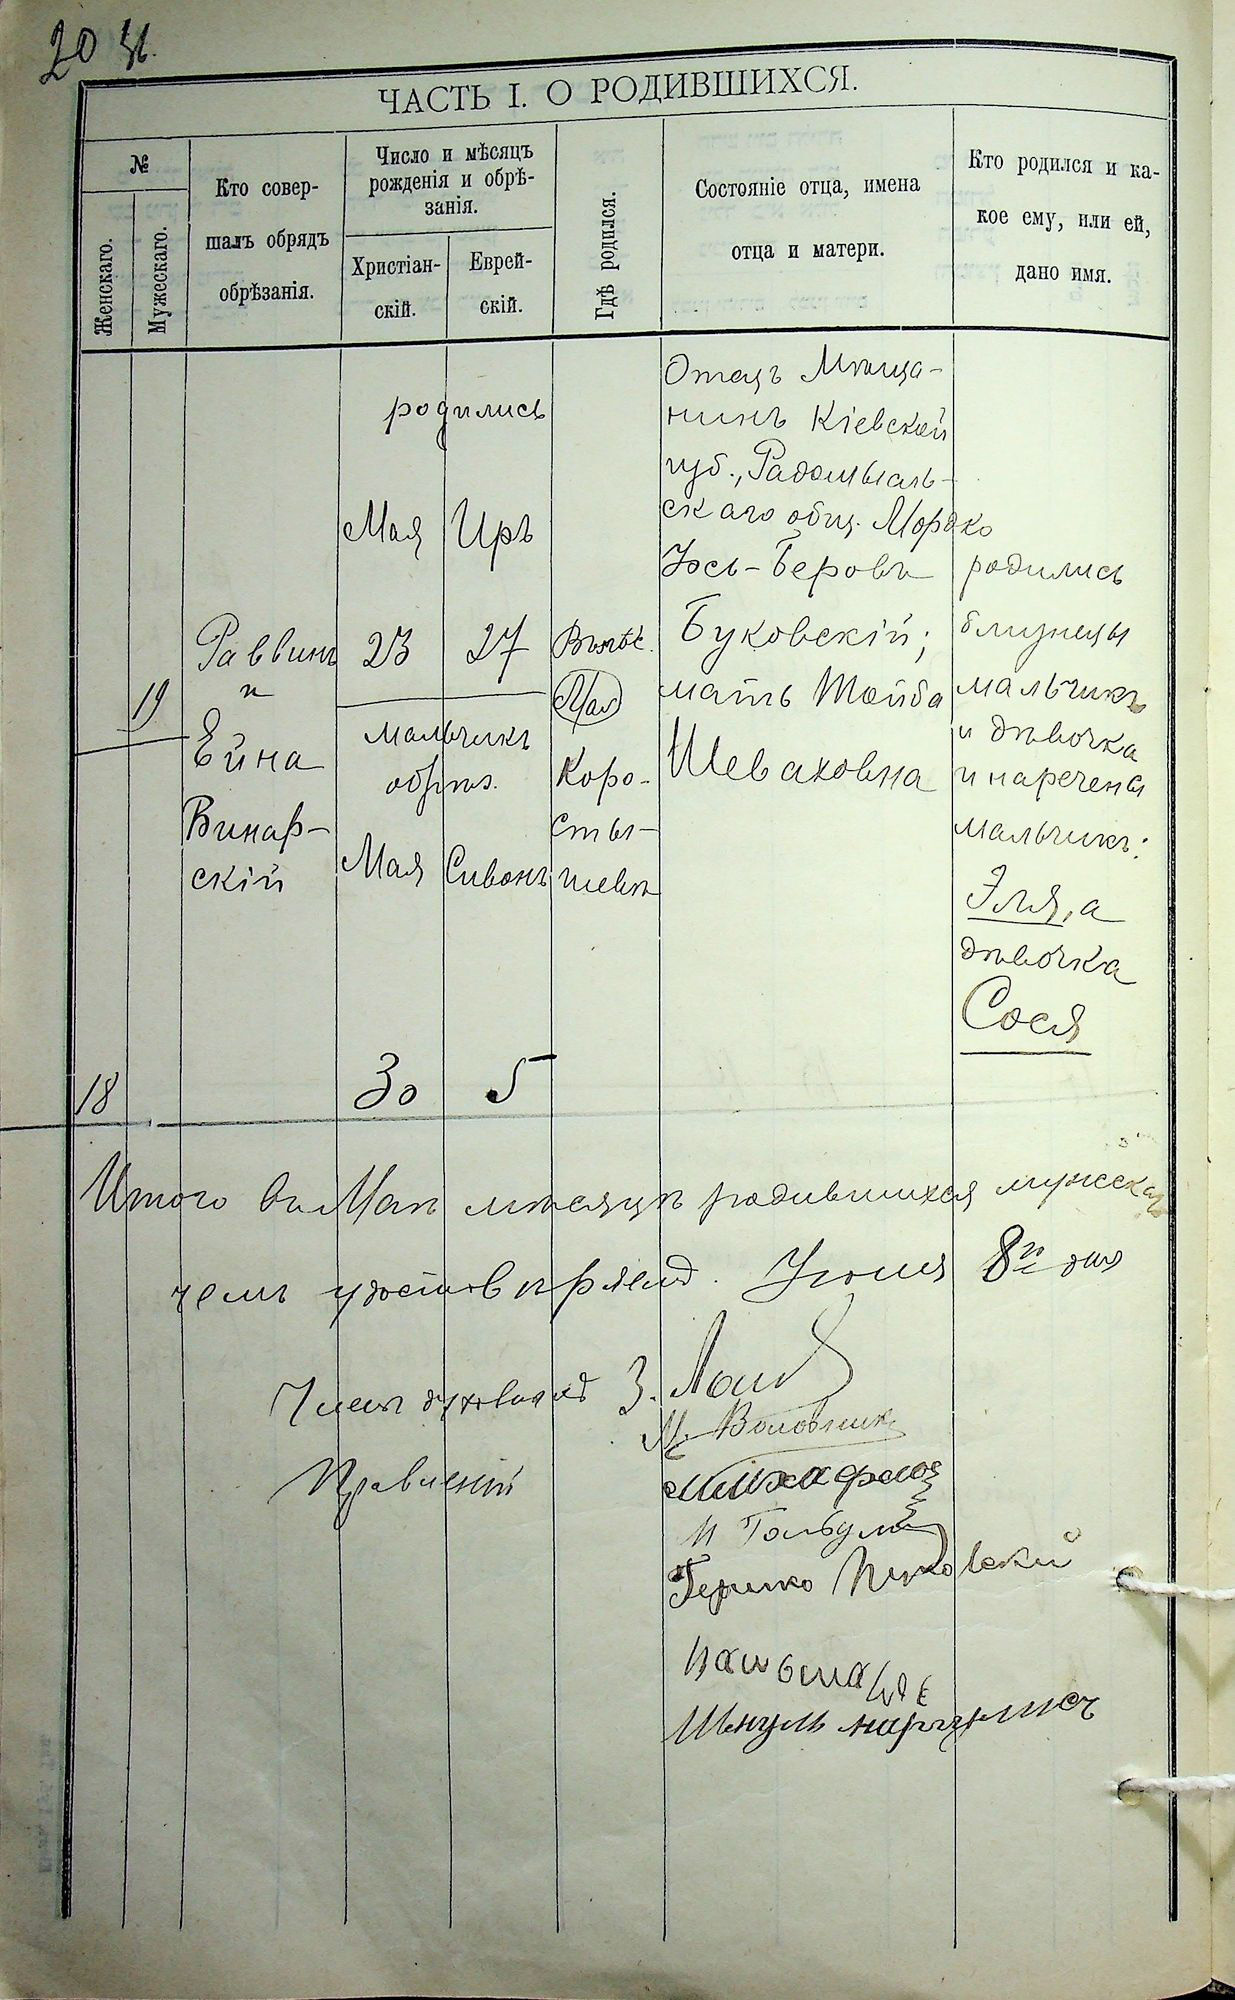 20
ЧАСТЬ I. О РОДИВШИХСЯ.
№
Женскаго.
Мужескаго.
Кто совер-
шалъ обрядъ
обрѣзанія.
Число и мѣсяцъ
рожденія и обрѣ-
занія.
Христіан-
скій.
Еврей-
скій.
Гдѣ родился.
Состояніе отца, имена
отца и матери.
Кто родился и ка-
кое ему, или ей,
дано имя.
19
18
Раввинъ
и
Ейна
Винар-
скій
родились
Мая Иръ
23 27
мальчикъ
обрѣз.
Мая Сивонъ
30 5
Въ мѣс.
Коро-
сты-
шевѣ
Отецъ Мѣща-
нинъ Кіевской
губ., Радомысль-
скаго общ. Мордко
Іось-Беровъ
Буковскій;
мать Тойба
Шеваховна
родились
близнецы
мальчикъ
и дѣвочка
и наречены
мальчикъ:
Эля, а
дѣвочка
Сося
Итого въ Маѣ мѣсяцѣ родившихся мужескаго
чемъ удостовѣряемъ. Іюня 8го дня
Члены духовнаго З.
Правленій
М. Воловник